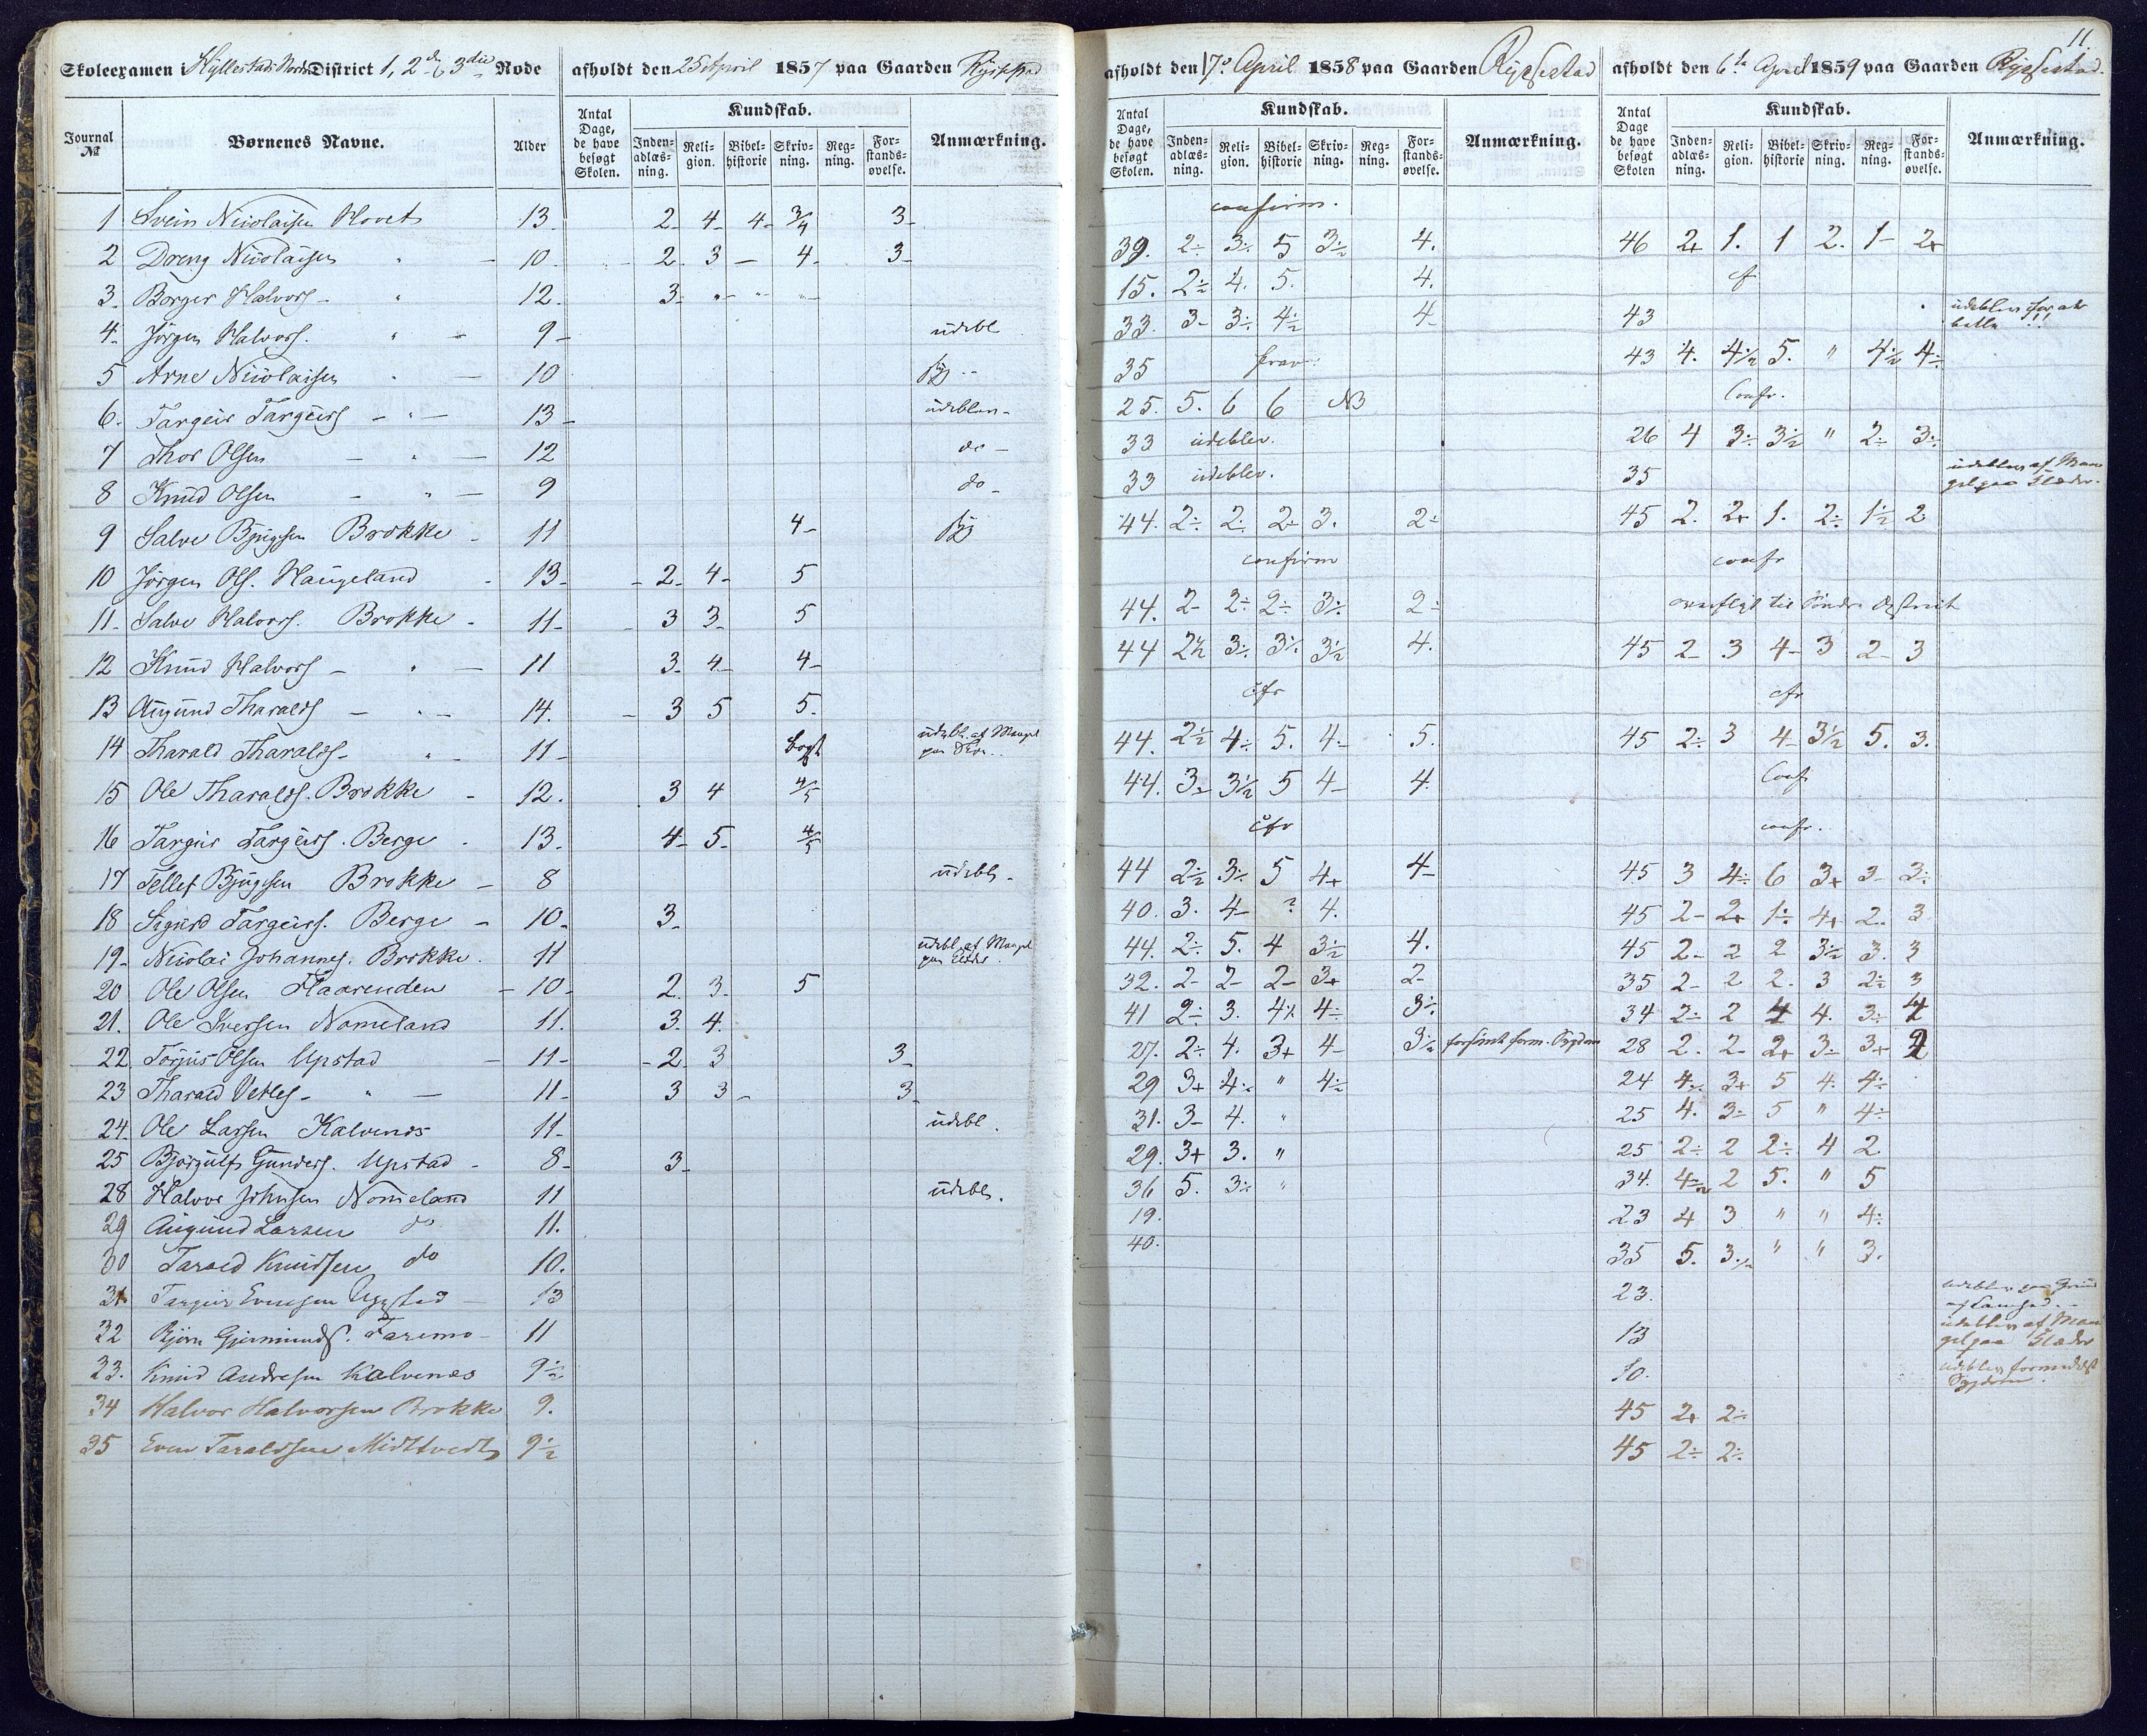 Skoleexamen i Hyllestad Nordre District 1, 2de & 3die Rode afholdt den 25 April 1857 paa Gaarden
Journal № Børnenes Navne. Alder Antal Dage, de have besøgt Skolen. Kundskab. Indenadlæsning. Religion. Bibelhistorie Skrivning. Regning. Forstandsøvelse. Anmærkning.
1 Svein Nicolaisen Hovet 13 2 4 4 3/4 3
2 Dreng Nicolaisen " 10 2 3 4 3
3 Borger Halvors " 12 3
4 Jörgen Halvors. " 9 udebl
5 Arne Nicolaisen 10
6 Targeir Targeirs 13 udeblev
7 Thor Olsen 12 do
8 Knud Olsen 9 do
9 Salve Bjugsen Brokke 11 4
10 Jörgen Ols. Haugeland 13 2 4 5
11 Salve Halvors. Brokke 11 3 3 5
12 Knud Halvors 11 3 4 4
13 Augund Tharalds 14 3 5 5
14 Tharald Tharalds 11 udebl. af Mangel paa
15 Ole Tharalds. Brokke 12 3 4 4/5
16 Targeir Targeirs. Berge 13 4 5 4/5
17 Tellef Bjugsen Brokke 8 udebl
18 Sigurd Targeirs. Berge 10 3
19 Nicolai Johannes. Brokke 11 udebl. af Mangel paa Klæder
20 Ole Olsen Flaarenden 10 2 3 5
21 Ole Iversen Nomeland 11 3 4
22 Torjus Olsen Upstad 11 2 3 3
23 Tharald Vetles " 11 3 3 3
24 Ole Larsen Kalvenes 11 udebl.
25 Bjorgulf Gunders. Upstad 8 3
28 Halvor Johnsen Nomeland 11 udebl.
29 Augund Larsen do 11.
30 Tarald Knudsen do 10.
31 Targeir Evensen 13
32 Björn Gjermunds. Faremo 11
33. Knud Andresen Kalvenes 9½
34 Halvor Halvorsen Brokke 9.
35 Even Taraldsen Midttvedt 9½
afholdt den 17de April 1858 paa Gaarden Ryssestad
Antal Dage, de have besøgt Skolen. Kundskab. Indenadlæsning. Religion. Bibelhistorie Skrivning. Regning. Forstandsøvelse. Anmærkning.
confirm.
39. 2÷ 3÷ 5 3½ 4.
15. 2½ 4. 5. 4.
33. 3- 3÷ 4½ 4-
35
25. 5. 6 6 NB
33 udeblev.
33 udeblev.
44. 2÷ 2÷ 2÷ 3. 2÷
confirm
44. 2- 2÷ 2÷ 3÷ 2÷
44 2½ 3÷ 3÷ 3½ 4.
cfr
44. 2½ 4÷ 5. 4- 5.
44. 3- 3½ 5 4- 4.
cfr
44 2½ 3÷ 5 4+ 4-
40. 3. 4- ? 4.
44. 2÷ 5. 4 3½ 4.
32. 2- 2- 2- 3+ 2-
41 2÷ 3. 4÷ 4÷ 3÷
27. 2÷ 4. 3+ 4- 3½ forsömt form. Sygdom
29 3+ 4÷ " 4½
31. 3- 4. "
29. 3+ 3. "
36 5. 3÷ "
19.
40.
11.
afholdt den 6te April 1859 paa Gaarden Ryssestad.
Antal Dage de have besøgt Skolen Kundskab. Indenadlæsning. Religion. Bibelhistorie Skrivning. Regning. Forstandsøvelse. Anmærkning.
46 2+ 1. 1 2. 1- 2+
cf
43 udeblev for at betle !!
43 4. 4½ 5. " 4½ 4÷
Confr.
26 4 3÷ 3½ " 2÷ 3÷
35 udeblev af Mangel paa Klæder.
45 2. 2+ 1. 2÷ 1½ 2
confr
overflyt til Söndre District
45 2- 3 4- 3 2- 3
cfr
45 2÷ 3 4- 3½ 5. 3.
Confr
confr.
45 3 4÷ 6 3+ 3- 3÷
45 2- 2+ 1÷ 4+ 2. 3
45 2- 2 2 3½ 3. 3
35 2- 2 2. 3 2÷ 3
34 2÷ 2 4 4. 3÷ 4
28 2. 2- 2+ 3- 3+ 2
24 4÷ 3+ 5 4. 4÷
25 4. 3÷ 5 " 4÷
25 2÷ 2 2÷ 4 2
34. 4½ 2 5. " 5
23 4 3 " " 4÷
35 5. 3÷ " " 3.
23. udeblev paa Grund af
13 udeblev af Mangel paa Klæder
10. udeblev formedelst Sygdom.
45 2+ 2÷
45 2÷ 2÷